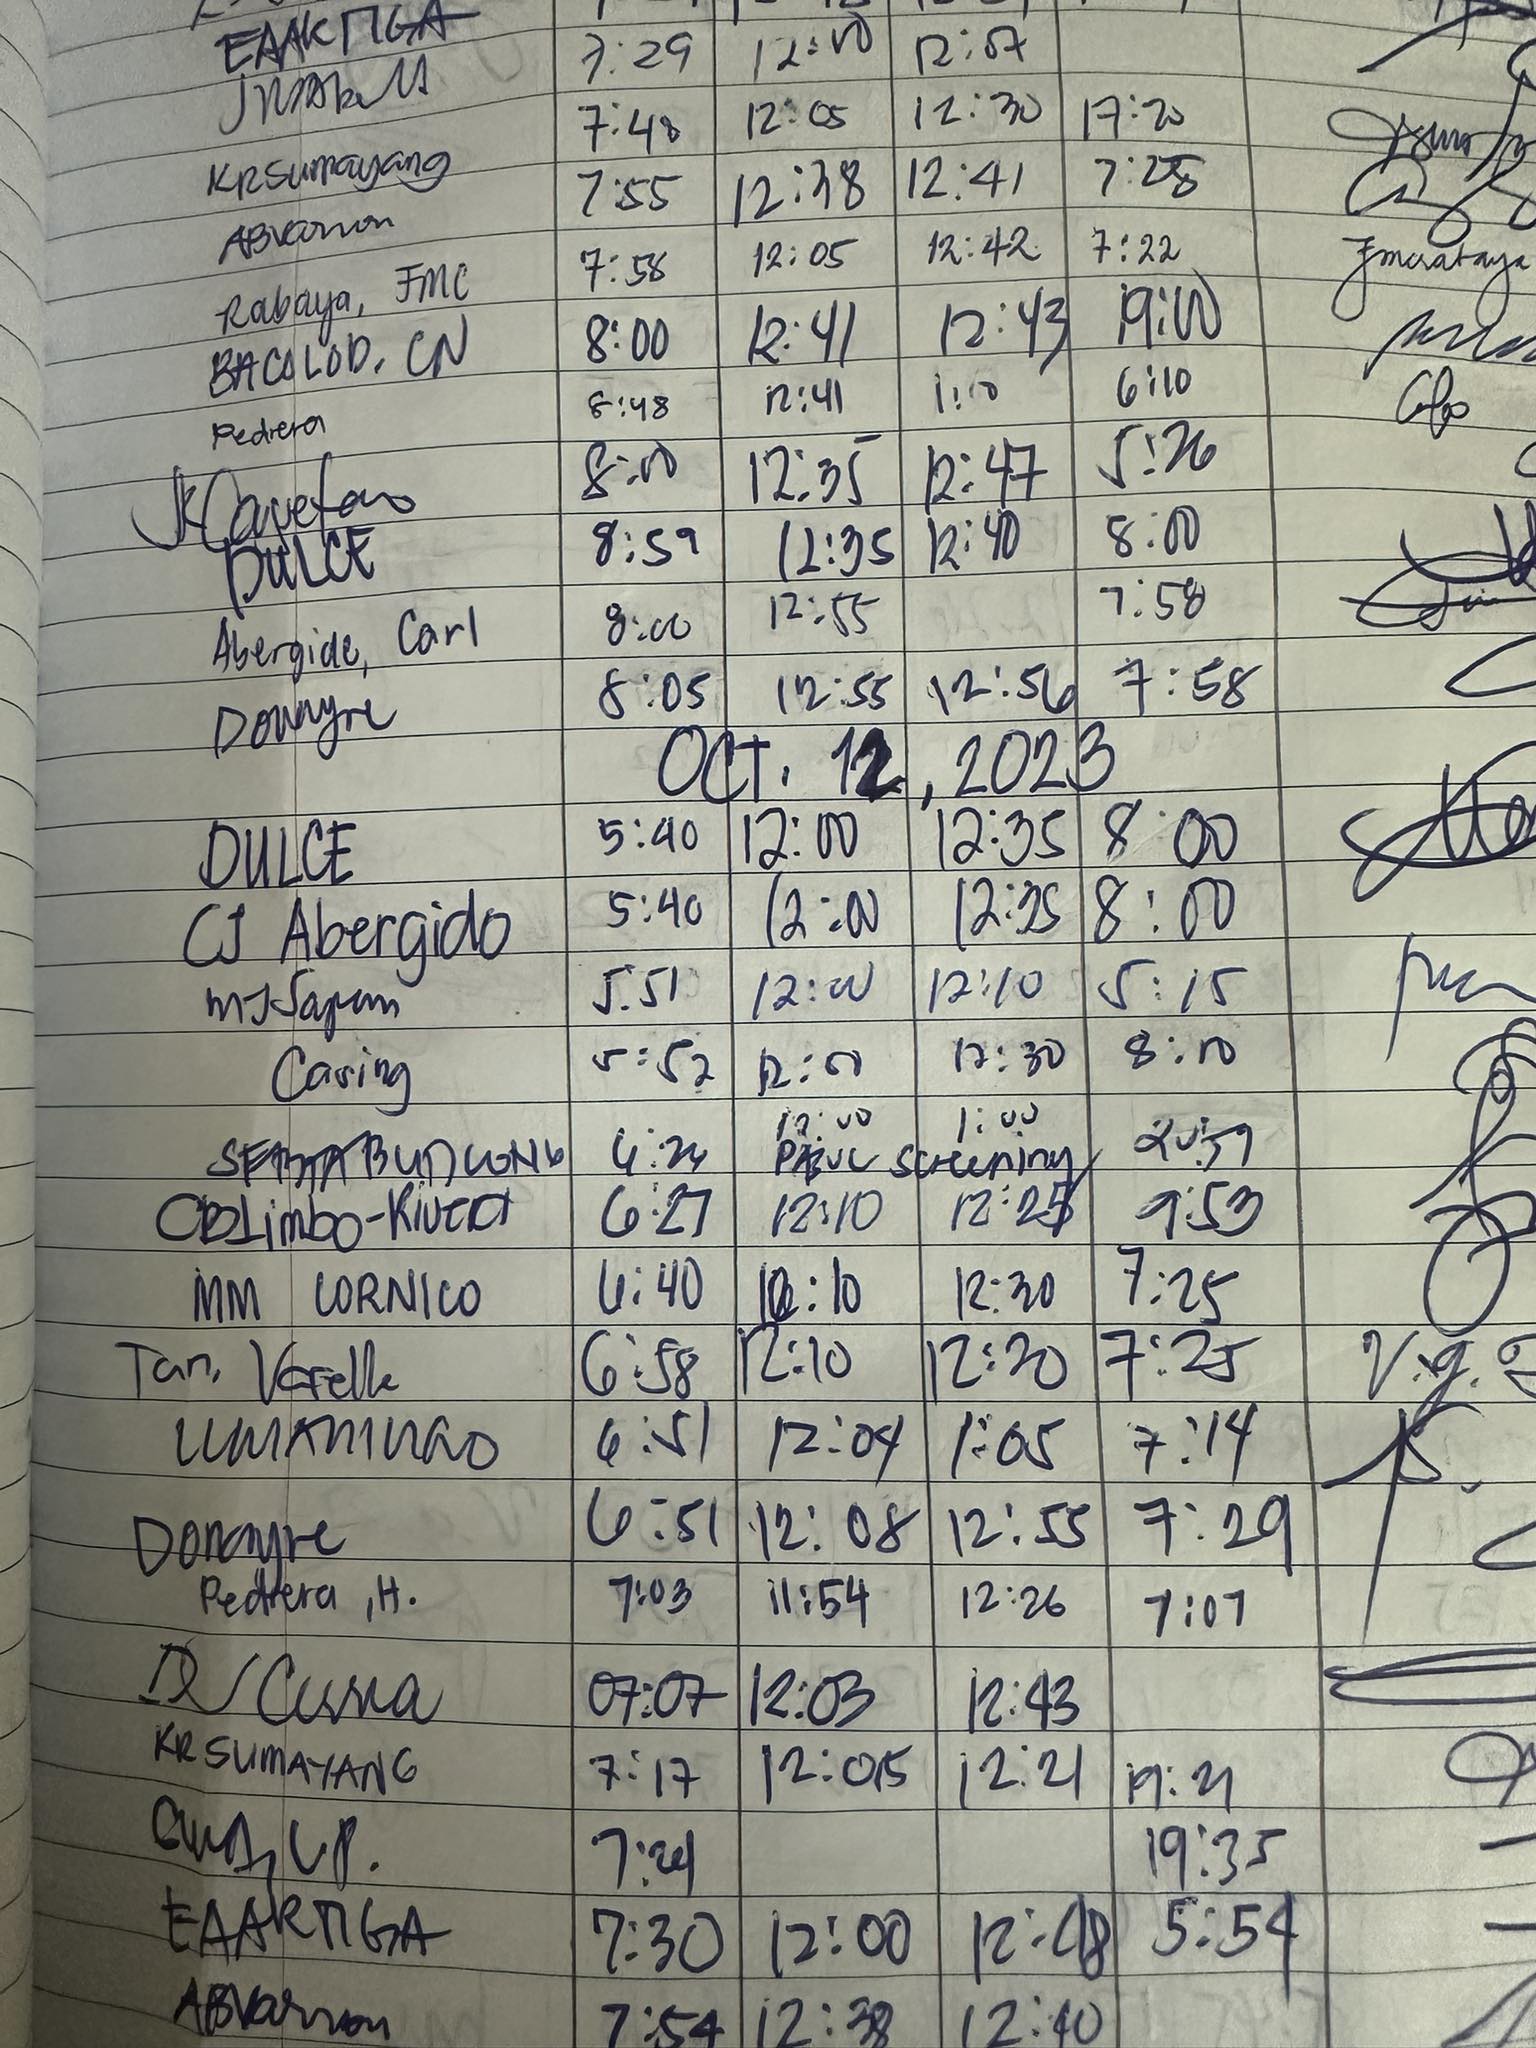 EAARTIGA 7:29 12:00 12:07
7:48 12:05 12:30 17:20
KRSumayang 7:55 12:38 12:41 7:28
ABVarron 7:58 12:05 12:42 7:22
Rabaya, FMC 8:00 12:41 12:43 19:00
BACOLOD, CN 8:48 12:41 1:10 6:10
Pedrera 8:00 12:35 12:47 5:26
JKCayetano 8:59 12:35 12:40 8:00
DULCE 8:00 12:55 7:58
Abergido, Carl 8:05 12:55 12:56 7:58
Donayre
OCT. 12, 2023
DULCE 5:40 12:00 12:35 8:00
CJ Abergido 5:40 12:00 12:35 8:00
5:51 12:00 12:10 5:15
Casing 5:52 12:00 12:30 8:10
12:00 1:00
6:24 Screening 20:59
CBLimbo-Rivera 6:27 12:10 12:25 9:53
MM CORNICO 6:40 12:10 12:30 7:25
Tan, Verelle 6:58 12:10 12:30 7:25 V.g.
6:51 12:04 1:05 7:14
Donayre 6:51 12:08 12:55 7:29
Pedrera, H. 7:03 11:54 12:26 7:07
07:07 12:03 12:43
KR SUMAYANG 7:17 12:05 12:21 19:21
7:24 19:35
EAARTIGA 7:30 12:00 12:48 5:54
ABVarron 7:54 12:38 12:40